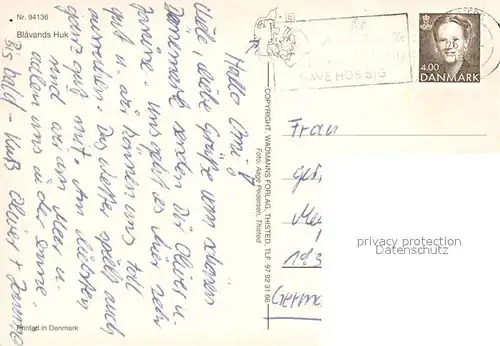 Nr. 94136
Blåvands Huk
Hallo Omi!
Viele, liebe Grüße vom schönen
Dänemark senden Dir Oliver u.
Janine. Uns geht es hier sehr
gut u. wir können uns toll
ausruhen. Das Wetter spielt auch
ganz gut mit. Am liebsten
sind wir am Meer u.
aalen uns in der Sonne.
Bis bald - Kuß Oliver + Janine
Printed in Denmark
COPYRIGHT. WADMANNS FORLAG, THISTED. TLF. 97 92 31 68
Foto: Aage Pedersen, Thisted
HAVE HOS SIG
4.00
DANMARK
Frau
privacy protection
Datenschutz
193
Germa